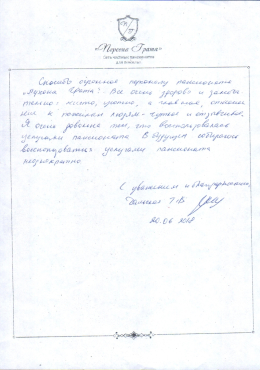 Сеть частных пансионатов
для пожилых
Спасибо огромное персоналу пансионата
Все очень здорово и замеча
тельно: чисто, уютно, а главное, отноше
ние к пожилым людям - чуткое и
Я очень довольна тем, что воспользовалась
услугами пансионата. В будущем собираюсь
воспользоваться услугами пансионата
неоднократно.
С уважением и благодарностью,